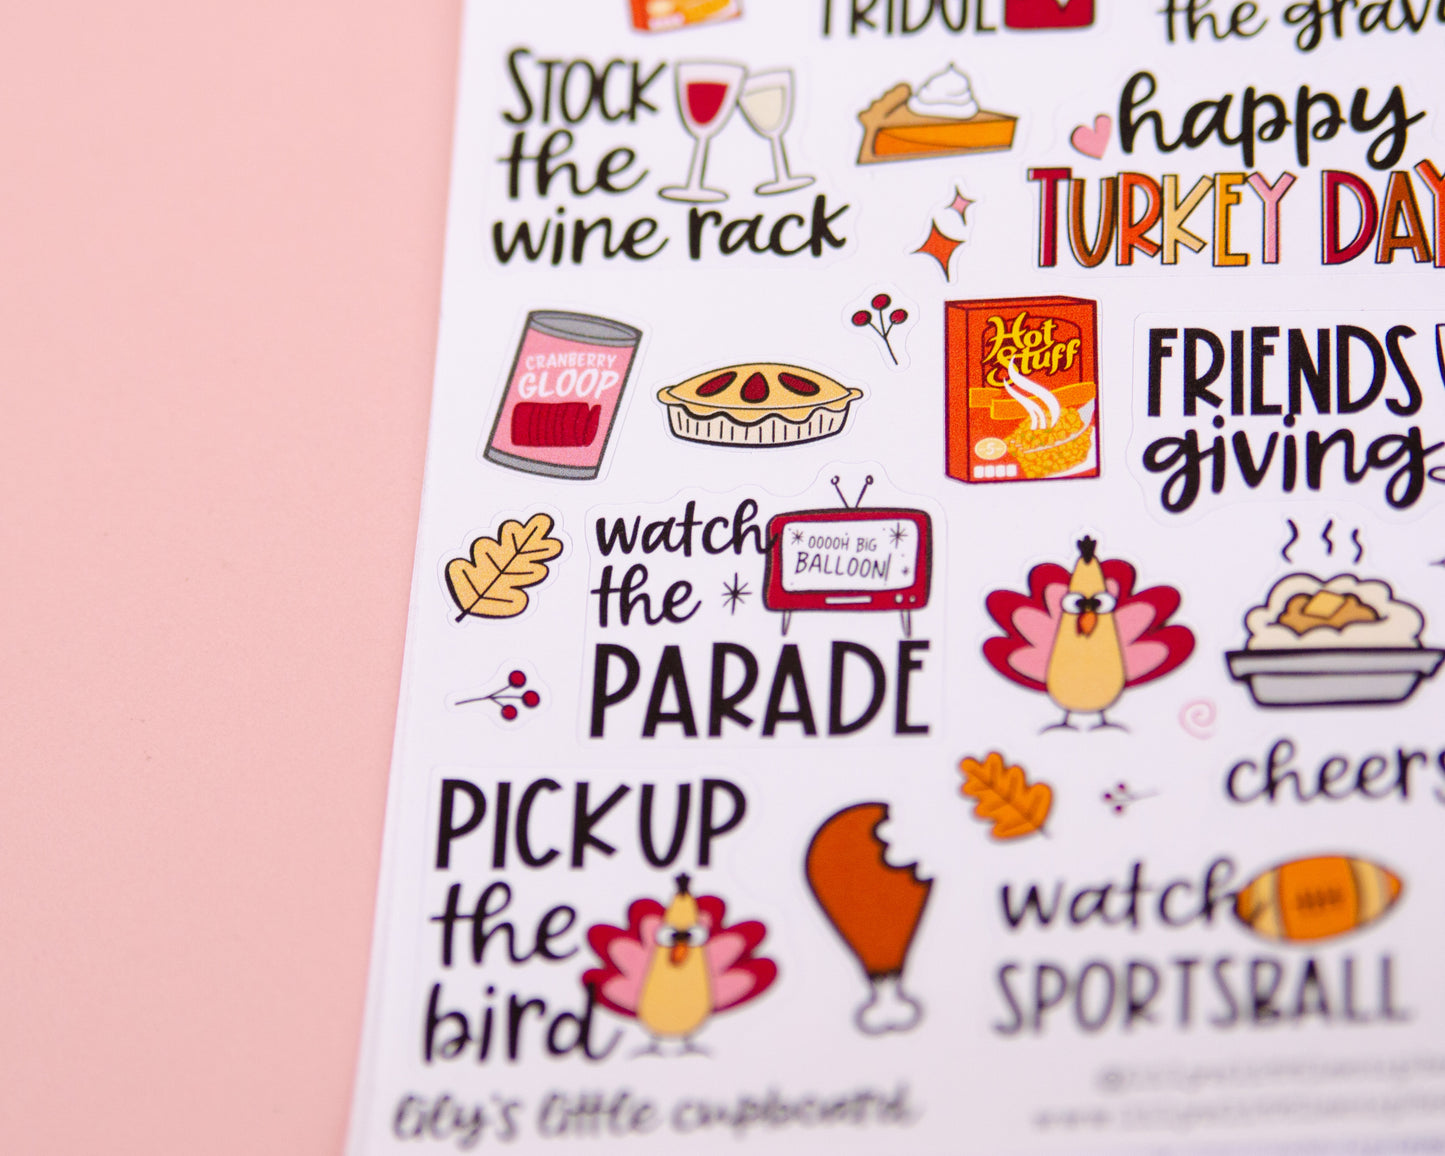 FRIDGE
the grav
STOCK
the
wine rack
happy
TURKEY DAY
CRANBERRY
GLOOP
Hot
Stuff
FRIENDS
giving
watch
the
PARADE
OOOOH BIG
BALLOON
cheers
PICK UP
the
bird
watch
SPORTSBALL
lily's little cupboard